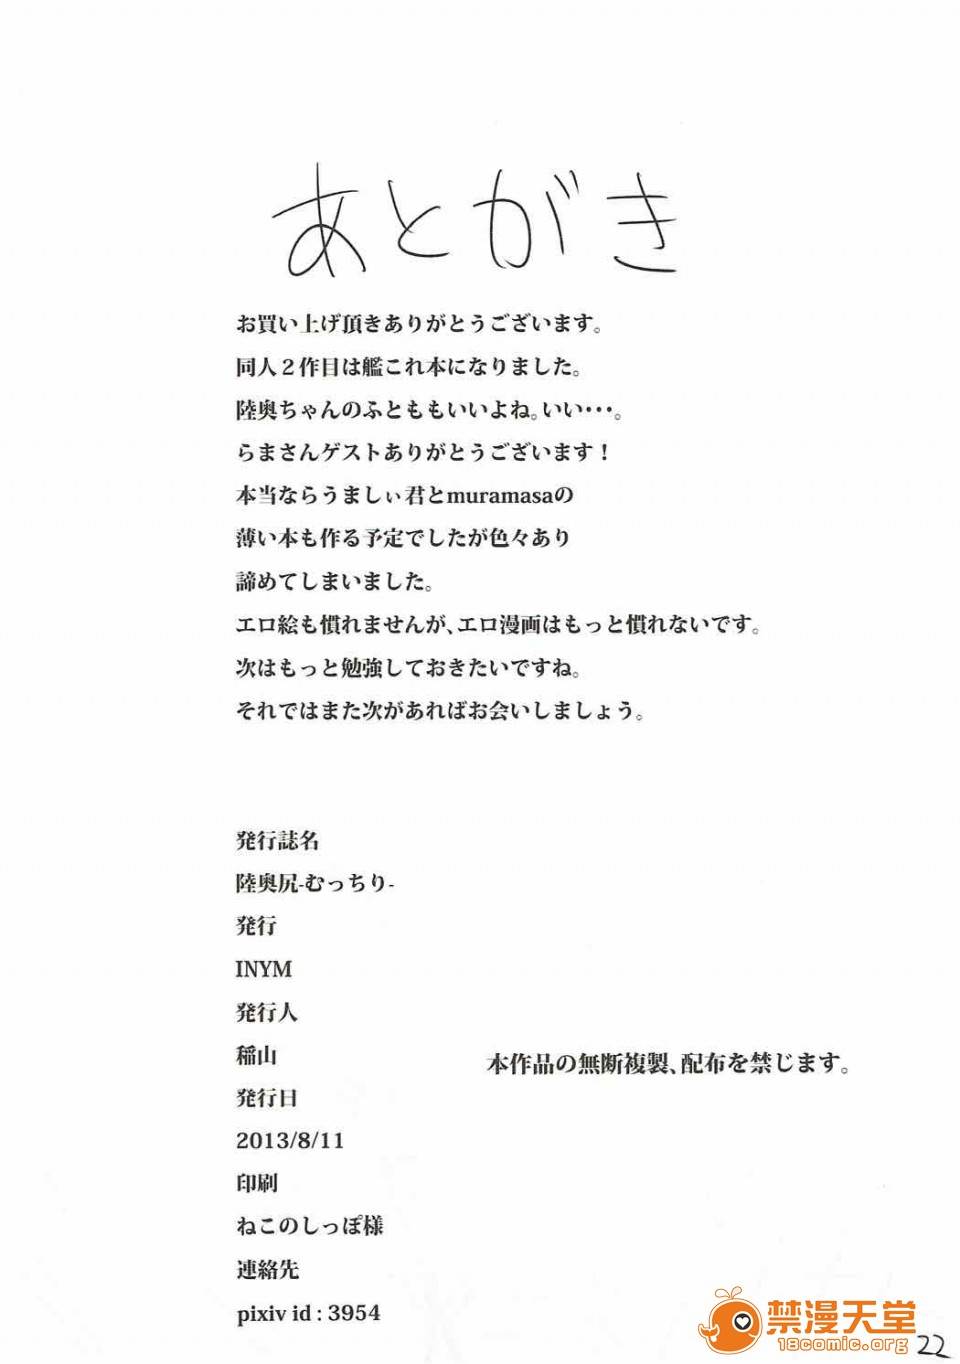 あとがき
お買い上げ頂きありがとうございます。
同人２作目は艦これ本になりました。
陸奥ちゃんのふとももいいよね。いい・・・。
らまさんゲストありがとうございます！
本当ならうましぃ君とmuramasaの
薄い本も作る予定でしたが色々あり
諦めてしまいました。
エロ絵も慣れませんが、エロ漫画はもっと慣れないです。
次はもっと勉強しておきたいですね。
それではまた次があればお会いしましょう。
発行誌名
陸奥尻-むっちり-
発行
INYM
発行人
稲山
本作品の無断複製、配布を禁じます。
発行日
2013/8/11
印刷
ねこのしっぽ様
連絡先
pixiv id : 3954
禁漫天堂
18comic.org
22